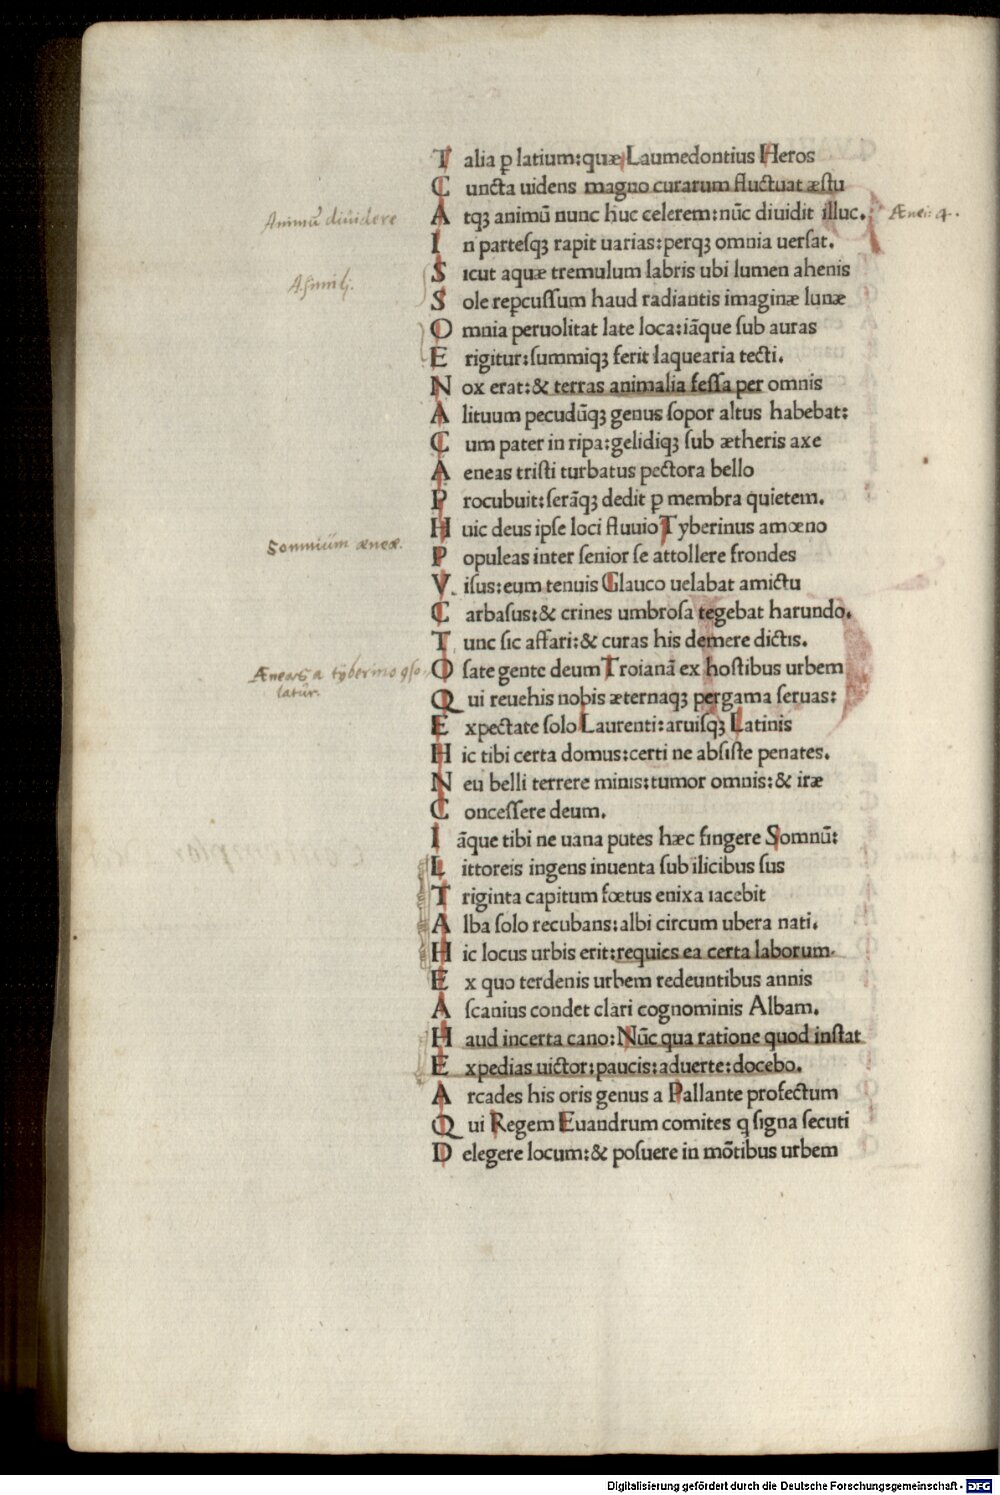 T alia ꝑ latium: quæ Laumedontius Heros
C uncta uidens magno curarum fluctuat æstu
Animū diuidere
A tqꝫ animū nunc huc celerem: nūc diuidit illuc.
Ænei: 4.
I n partesqꝫ rapit uarias: perqꝫ omnia uersat.
S icut aquæ tremulum labris ubi lumen ahenis
A simili.
S ole repcussum haud radiantis imaginæ lunæ
O mnia peruolitat late loca: iāque sub auras
E rigitur: summiqꝫ ferit laquearia tecti.
N ox erat: & terras animalia fessa per omnis
A lituum pecudūqꝫ genus sopor altus habebat:
C um pater in ripa: gelidiqꝫ sub ætheris axe
A eneas tristi turbatus pectora bello
P rocubuit: serāqꝫ dedit ꝑ membra quietem.
H uic deus ipse loci fluuio Tyberinus amœno
Somnium æneæ.
P opuleas inter senior se attollere frondes
V isus: eum tenuis Glauco uelabat amictu
C arbasus: & crines umbrosa tegebat harundo.
T unc sic affari: & curas his demere dictis.
Æneas a tyberino ꝯso-
latur.
O sate gente deum Troianā ex hostibus urbem
Q ui reuehis nobis æternaqꝫ pergama seruas:
E xpectate solo Laurenti: aruisqꝫ Latinis
H ic tibi certa domus: certi ne absiste penates.
N eu belli terrere minis: tumor omnis: & iræ
C oncessere deum.
I āque tibi ne uana putes hæc fingere Somnū:
L ittoreis ingens inuenta sub ilicibus sus
T riginta capitum fœtus enixa iacebit
A lba solo recubans: albi circum ubera nati.
H ic locus urbis erit: requies ea certa laborum.
E x quo terdenis urbem redeuntibus annis
A scanius condet clari cognominis Albam.
H aud incerta cano: Nūc qua ratione quod instat
E xpedias uictor: paucis: aduerte: docebo.
A rcades his oris genus a Pallante profectum
Q ui Regem Euandrum comites q signa secuti
D elegere locum: & posuere in mōtibus urbem
Digitalisierung gefördert durch die Deutsche Forschungsgemeinschaft - DFG